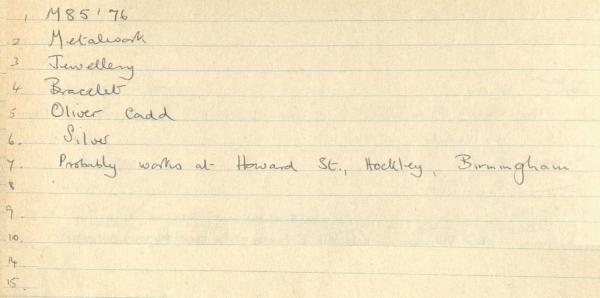 1 M85'76
2 Metalwork
3 Jewellery
4 Bracelet
5 Oliver Cadd
6. Silver
7. Probably works at Howard St., Hockley, Birmingham
8
9.
10.
14
15.